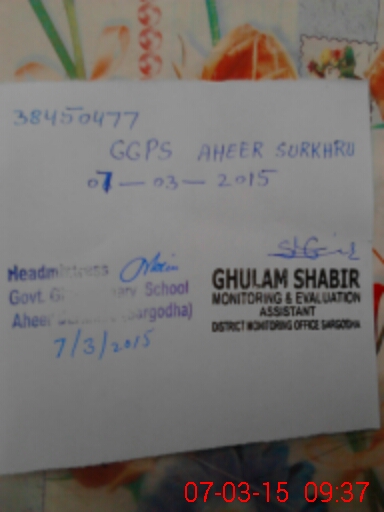 38450477
GGPS AHEER SURKHRU
07-03-2015
Headmistress
Govt. School
Aheer (Sargodha)
7/3/2015
GHULAM SHABIR
MONITORING & EVALUATION
ASSISTANT
DISTRICT MONITORING OFFICE SARGODHA
07-03-15 09:37